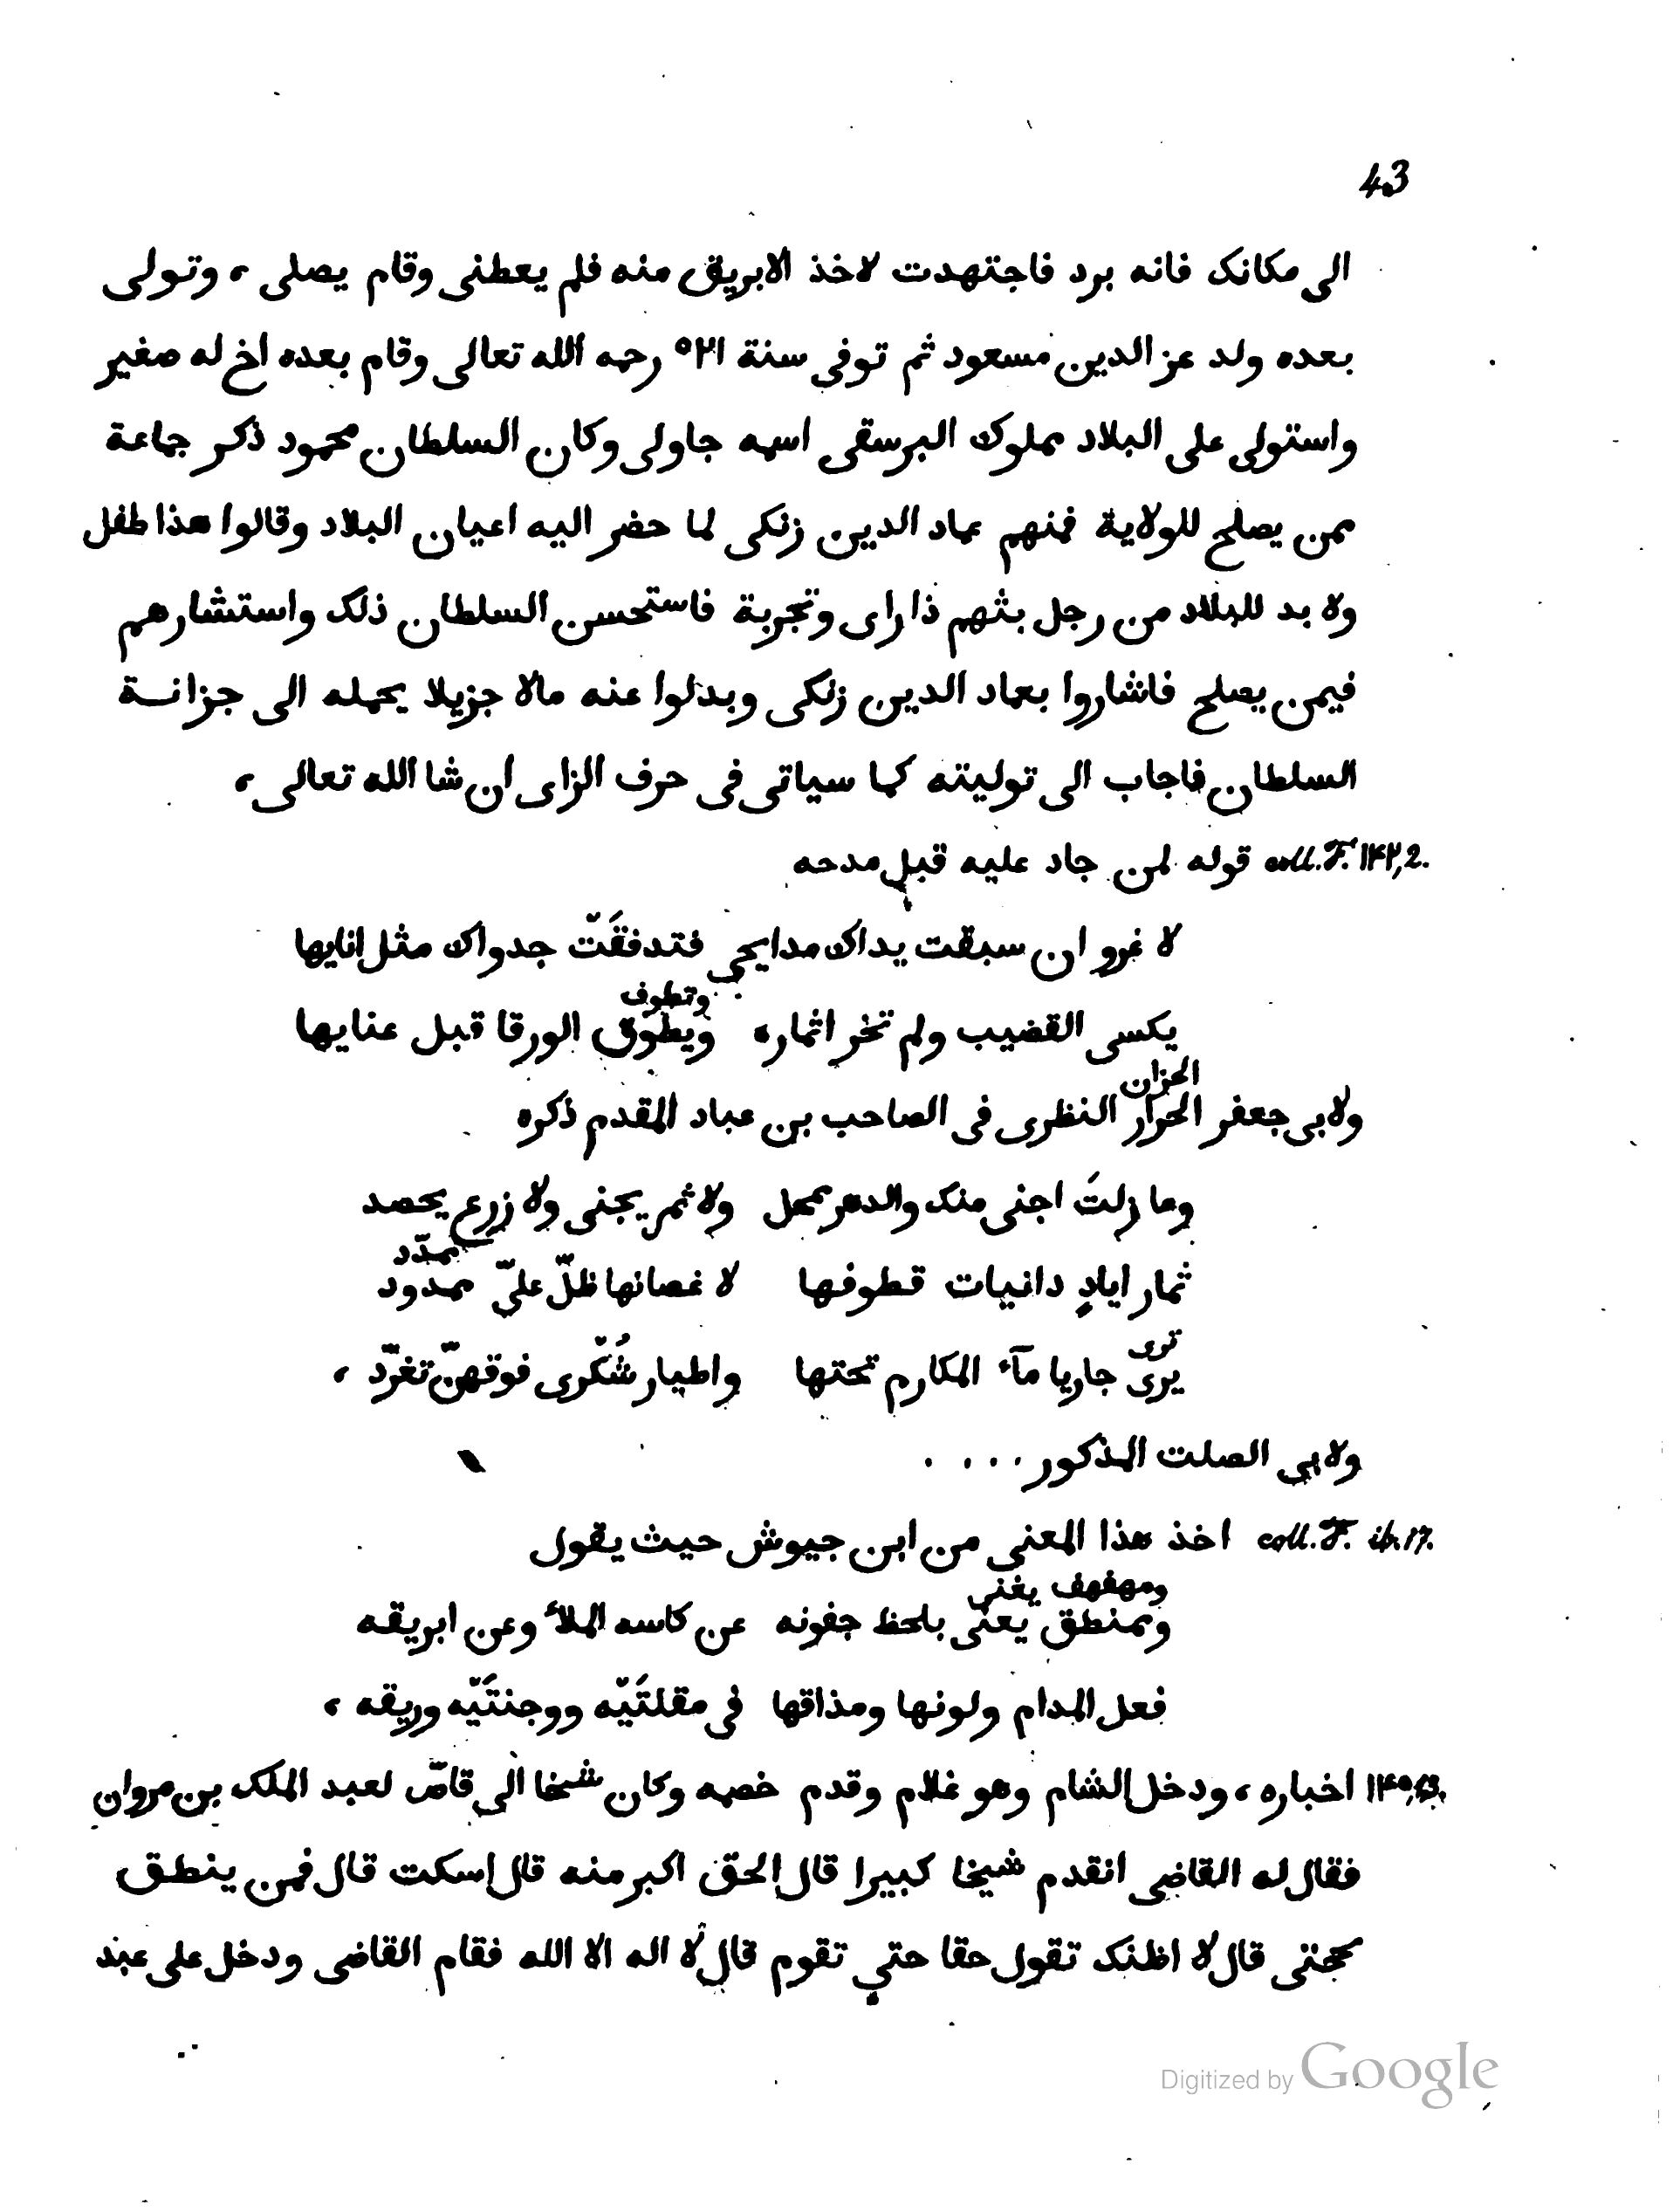 43
الى مكانك فانه برد فاجتهدت لاخذ الابريق منه فلم يعطنى وقام يصلى، وتولى
بعده ولد عز الدين مسعود ثم توفى سنة ٥٢١ رحمه الله تعالى وقام بعده اخ له صغير
واستولى على البلاد مملوك البرسقى اسمه جاولى وكان السلطان محمود ذكر جماعة
ممن يصلح للولاية فمنهم عماد الدين زنكى لما حضر اليه اعيان البلاد وقالوا هذا طفل
ولا بد للبلاد من رجل بثهم ذا راى وتجربة فاستحسن السلطان ذلك واستشارهم
فيمن يصلح فاشاروا بعماد الدين زنكى وبذلوا عنه مالا جزيلا يحمله الى جزانة
السلطان فاجاب الى توليته كما سياتى فى حرف الزاى ان شا الله تعالى،
coll. F. ١٤٢,2. قوله لمن جاد عليه قبل مدحه
لا غرو ان سبقت يداك مدايحى فتدفقَّت جدواك مثل انايها
وتطوف
يكسى القضيب ولم تخر اثماره ويطوّق الورقا قبل عنايها
الحزان
ولابى جعفر الحرار النظرى فى الصاحب بن عباد المقدم ذكره
وما زلتَ اجنى منك والدهر ممحل ولا ثمر يجنى ولا زرع يحصد
ممدّد
ثمار ايادٍ دانيات قطوفها لا غصانها ظلّ علىّ ممدود
ترى
يرى جاريا مآء المكارم تحتها واطيار شُكّرى فوقهنّ تغرّد،
ولابى الصلت المذكور ....
coll. F. ib. 17. اخذ هذا المعنى من ابن جيوش حيث يقول
ومهفهف يغنى
وممنطق يعنى بلحظ جفونه عن كاسه الملأ وعن ابريقه
فعل المدام ولونها ومذاقها فى مقلتَيّه ووجنتَيّه وريقه،
اخباره، ودخل الشام وهو غلام وقدم خصمه وكان شيخا الى قاصّ لعبد الملك بن مروان
فقال له القاضى انقدم شيخا كبيرا قال الحق اكبر منه قال اسكت قال فمن ينطق
بحجتى قال لا اظنك تقول حقا حتى تقوم قال لا اله الا الله فقام القاضى ودخل على عبد
Digitized by Google